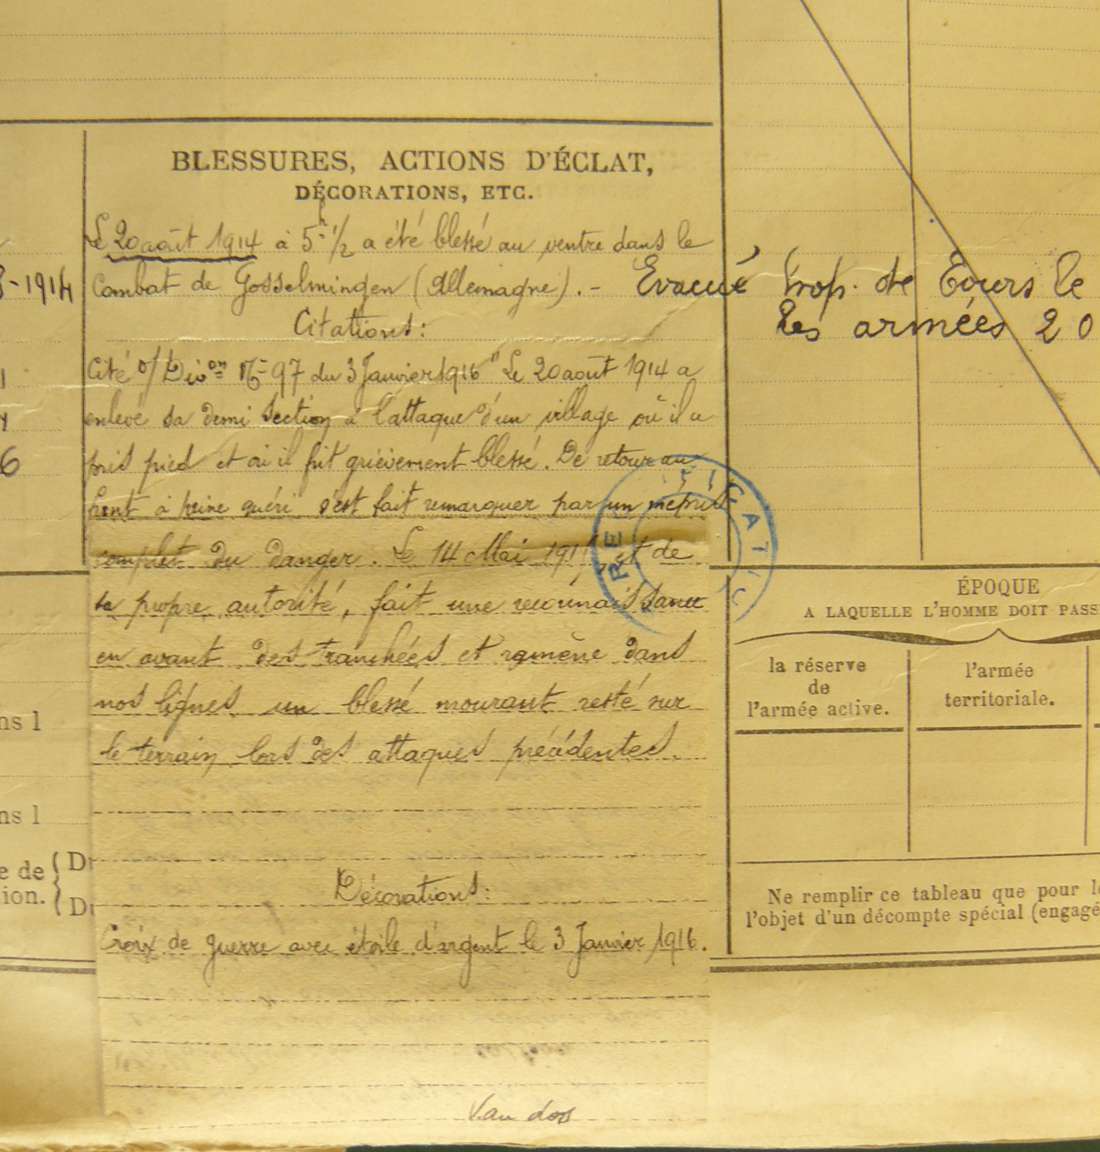 BLESSURES, ACTIONS D'ÉCLAT,
DÉCORATIONS, ETC.
Le 20 août 1914 à 5 h 1/2 a été blessé au ventre dans le
Combat de Gosselmingen (Allemagne). -
Citations:
Cité o/ Dion No 97 du 3 Janvier 1916 " Le 20 août 1914 a
enlevé sa demi section à l'attaque d'un village où il a
pris pied et où il fut grièvement blessé. De retour au
front à peine guéri s'est fait remarquer par un mépris
complet du danger. Le 14 Mai 191 et de
sa propre autorité, fait une reconnaissance
en avant des tranchées et ramène dans
nos lignes un blessé mourant resté sur
le terrain lors des attaques précédentes.
Décorations:
Croix de guerre avec étoile d'argent le 3 Janvier 1916.
V. au dos
-1914
6
ns 1
ns 1
e de { D
ion. { D
Evacué hop. de Tours le
les armées 20
ÉPOQUE
A LAQUELLE L'HOMME DOIT PASS
la réserve
de
l'armée active.
l'armée
territoriale.
Ne remplir ce tableau que pour l
l'objet d'un décompte spécial (engagé